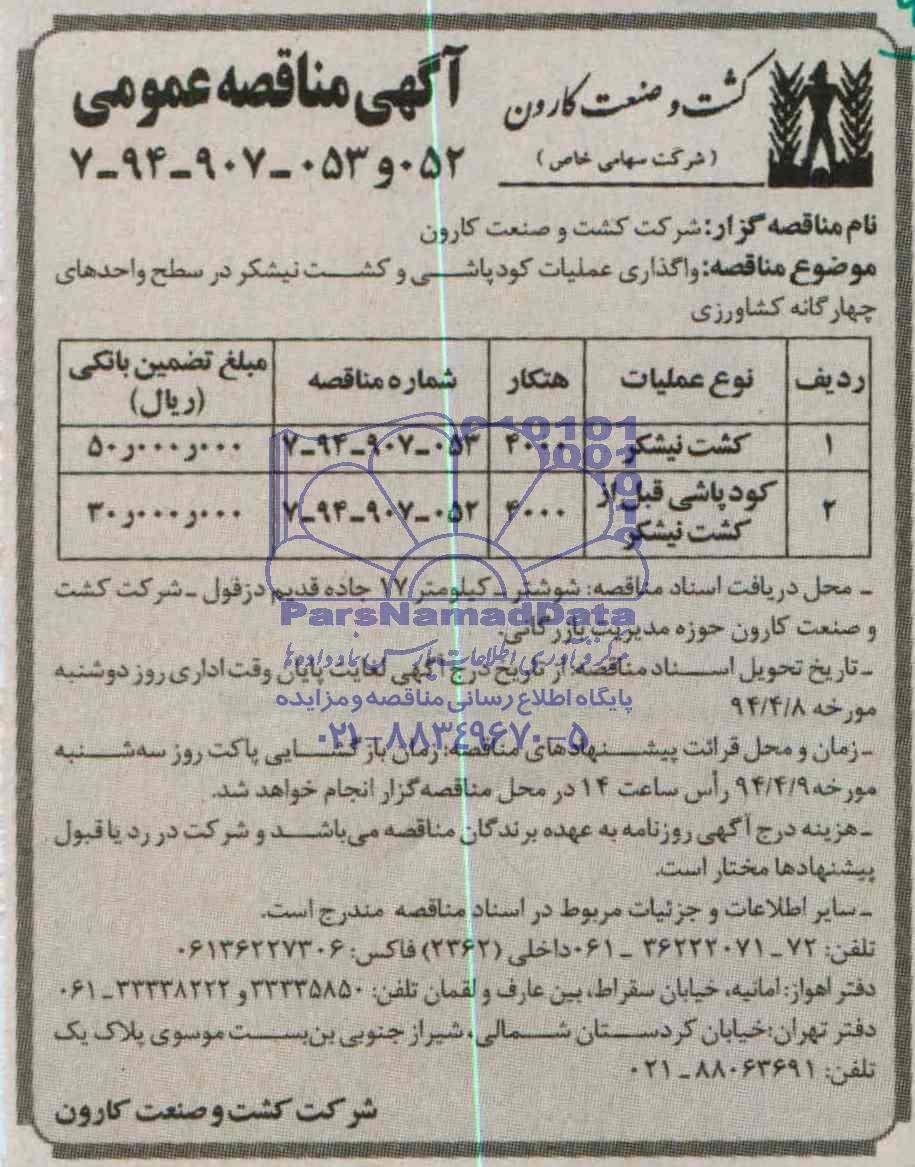 کشت و صنعت کارون
(شرکت سهامی خاص)
آگهی مناقصه عمومی
۰۵۲ و ۰۵۳-۹۰۷-۹۴-۷
نام مناقصه گزار: شرکت کشت و صنعت کارون
موضوع مناقصه: واگذاری عملیات کودپاشی و کشت نیشکر در سطح واحدهای
چهارگانه کشاورزی
ردیف نوع عملیات هکتار شماره مناقصه مبلغ تضمین بانکی (ریال)
۱ کشت نیشکر ۴۰۰۰ ۰۵۳-۹۰۷-۹۴-۷ ۵۰ر۰۰۰ر۰۰۰
۲ کودپاشی قبل از کشت نیشکر ۴۰۰۰ ۰۵۲-۹۰۷-۹۴-۷ ۳۰ر۰۰۰ر۰۰۰
- محل دریافت اسناد مناقصه: شوشتر - کیلومتر ۱۷ جاده قدیم دزفول - شرکت کشت
و صنعت کارون حوزه مدیریت بازرگانی.
- تاریخ تحویل اسناد مناقصه: از تاریخ درج آگهی لغایت پایان وقت اداری روز دوشنبه
مورخه ۹۴/۴/۸
- زمان و محل قرائت پیشنهادهای مناقصه: زمان بازگشایی پاکت روز سه‌شنبه
مورخه ۹۴/۴/۹ رأس ساعت ۱۴ در محل مناقصه‌گزار انجام خواهد شد.
- هزینه درج آگهی روزنامه به عهده برندگان مناقصه می‌باشد و شرکت در رد یا قبول
پیشنهادها مختار است.
- سایر اطلاعات و جزئیات مربوط در اسناد مناقصه مندرج است.
تلفن: ۷۲-۳۶۲۲۲۰۷۱-۰۶۱ داخلی (۲۳۶۲) فاکس: ۰۶۱۳۶۲۲۷۳۰۶
دفتر اهواز: امانیه، خیابان سقراط، بین عارف و لقمان تلفن: ۳۳۳۳۵۸۵۰ و ۳۳۳۳۸۲۲۲-۰۶۱
دفتر تهران: خیابان کردستان شمالی، شیراز جنوبی بن‌بست موسوی پلاک یک
تلفن: ۸۸۰۶۳۶۹۱-۰۲۱
شرکت کشت و صنعت کارون
ParsNamadData
مرکز فرآوری اطلاعات پارس نماد داده‌ها
پایگاه اطلاع رسانی مناقصه و مزایده
۰۲۱-۸۸۳۴۹۶۷۰-۵